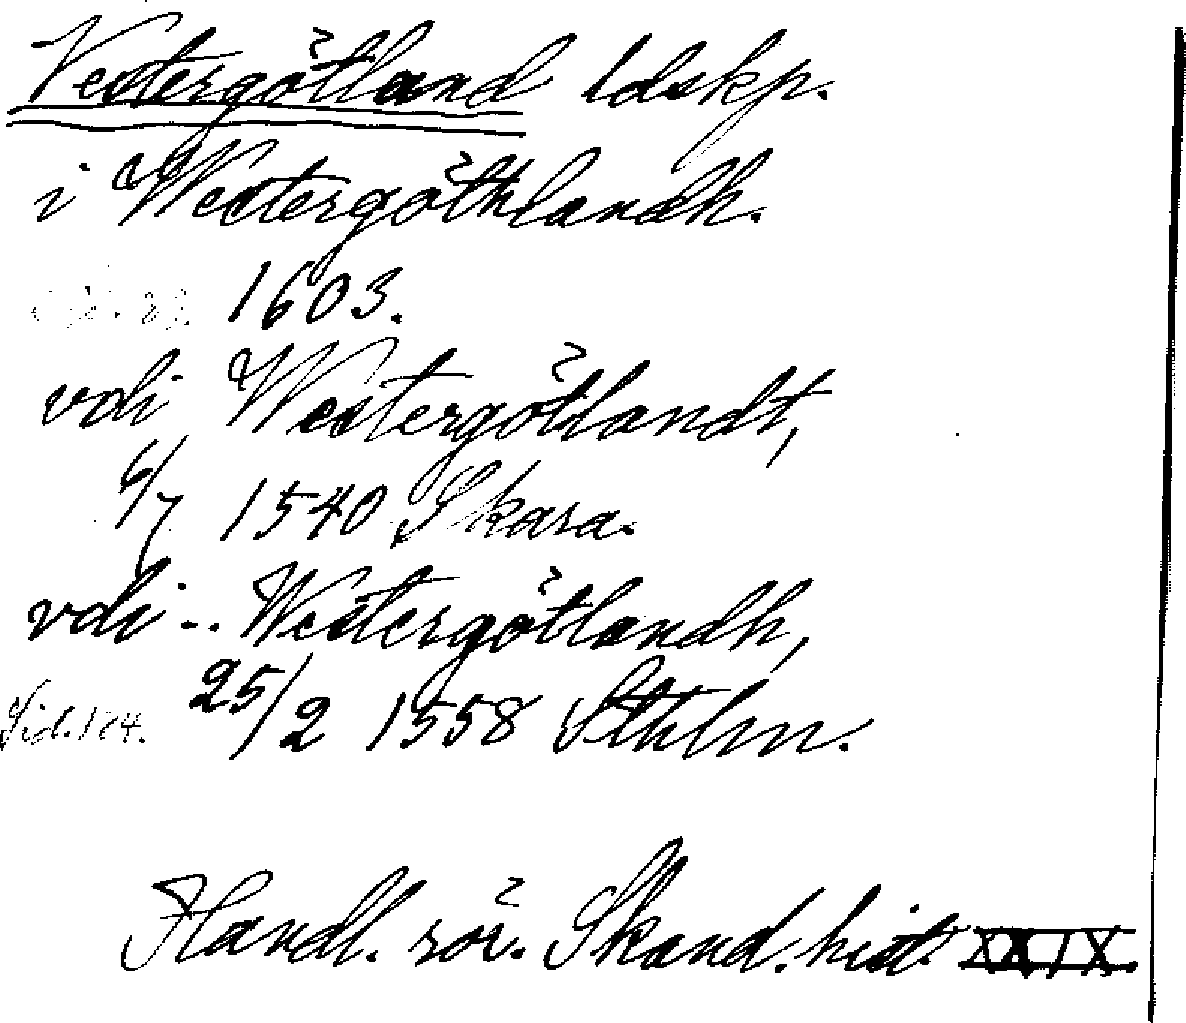 Vestergötland ldskp.
i Westergöthlandh.
1603.
vdi Westergötlandt,
6/7 1540 Skara.
vdi -- Westergötlandh,
Sid. 184. 25/2 1558 Sthlm.
Handl. rör. Skand. hist. XXIX.